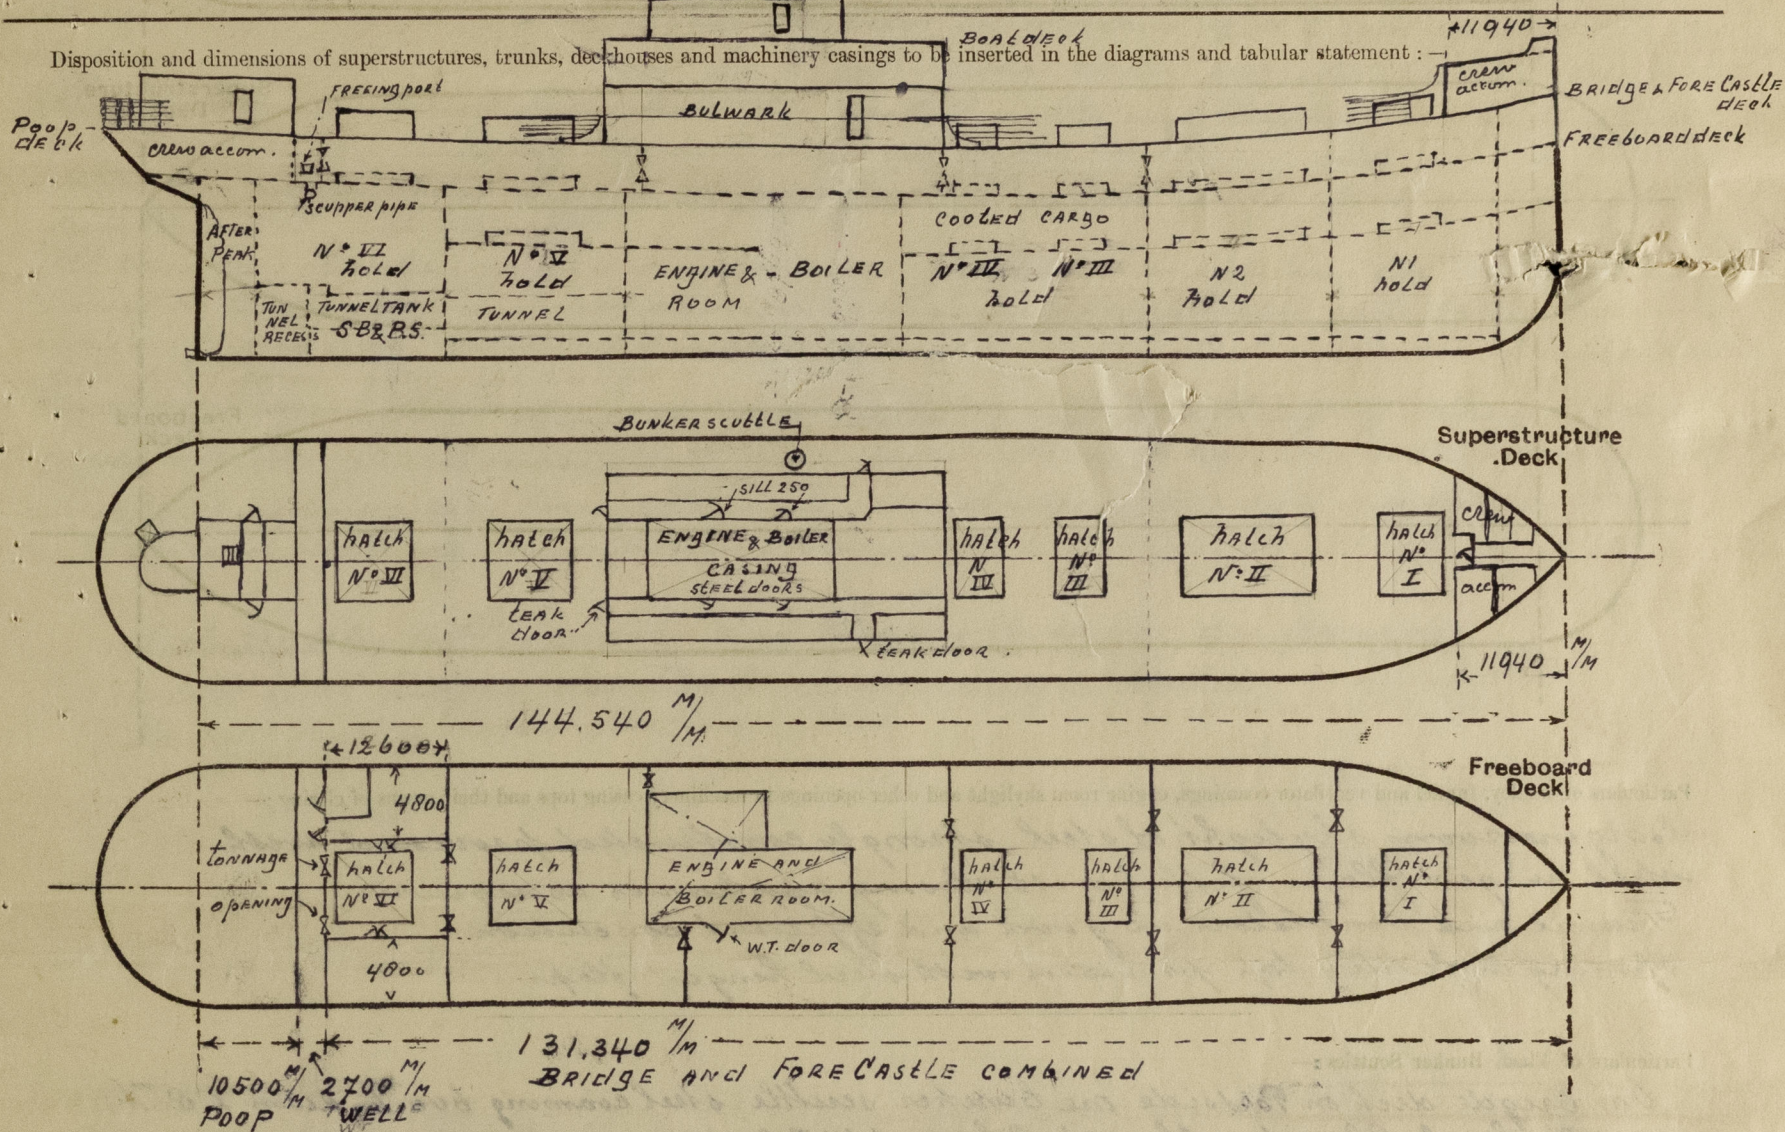 11940
BOAT DECK
Disposition and dimensions of superstructures, trunks, deckhouses and machinery casings to be inserted in the diagrams and tabular statement :—
crew
accom.
BRIDGE & FORE CASTLE
DECK
FREEING PORT
POOP
DECK
BULWARK
FREEBOARD DECK
crew accom.
SCUPPER PIPE
AFTER
PEAK
No VI
hold
No V
hold
ENGINE & - BOILER
ROOM
COOLED CARGO
No IV No III
hold
N2
hold
N1
hold
TUN
NEL
RECESS
TUNNEL TANK
S B & P.S.
TUNNEL
BUNKER SCUTTLE
Superstructure
Deck
SILL 250
hatch
No VI
hatch
No V
ENGINE & BOILER
CASING
STEEL DOORS
hatch
N
IV
hatch
No
III
hatch
No II
hatch
No
I
crew
accm
TEAK
DOOR
TEAK DOOR
11940 M/M
144.540 M/M
12600
Freeboard
Deck
4800
TONNAGE
OPENING
hatch
No VI
hatch
No V
ENGINE AND
BOILER ROOM.
hatch
No
IV
hatch
No
III
hatch
No II
hatch
No
I
W.T. DOOR
4800
131.340 M/M
BRIDGE AND FORE CASTLE COMBINED
10500 M/M 2700 M/M
POOP WELL